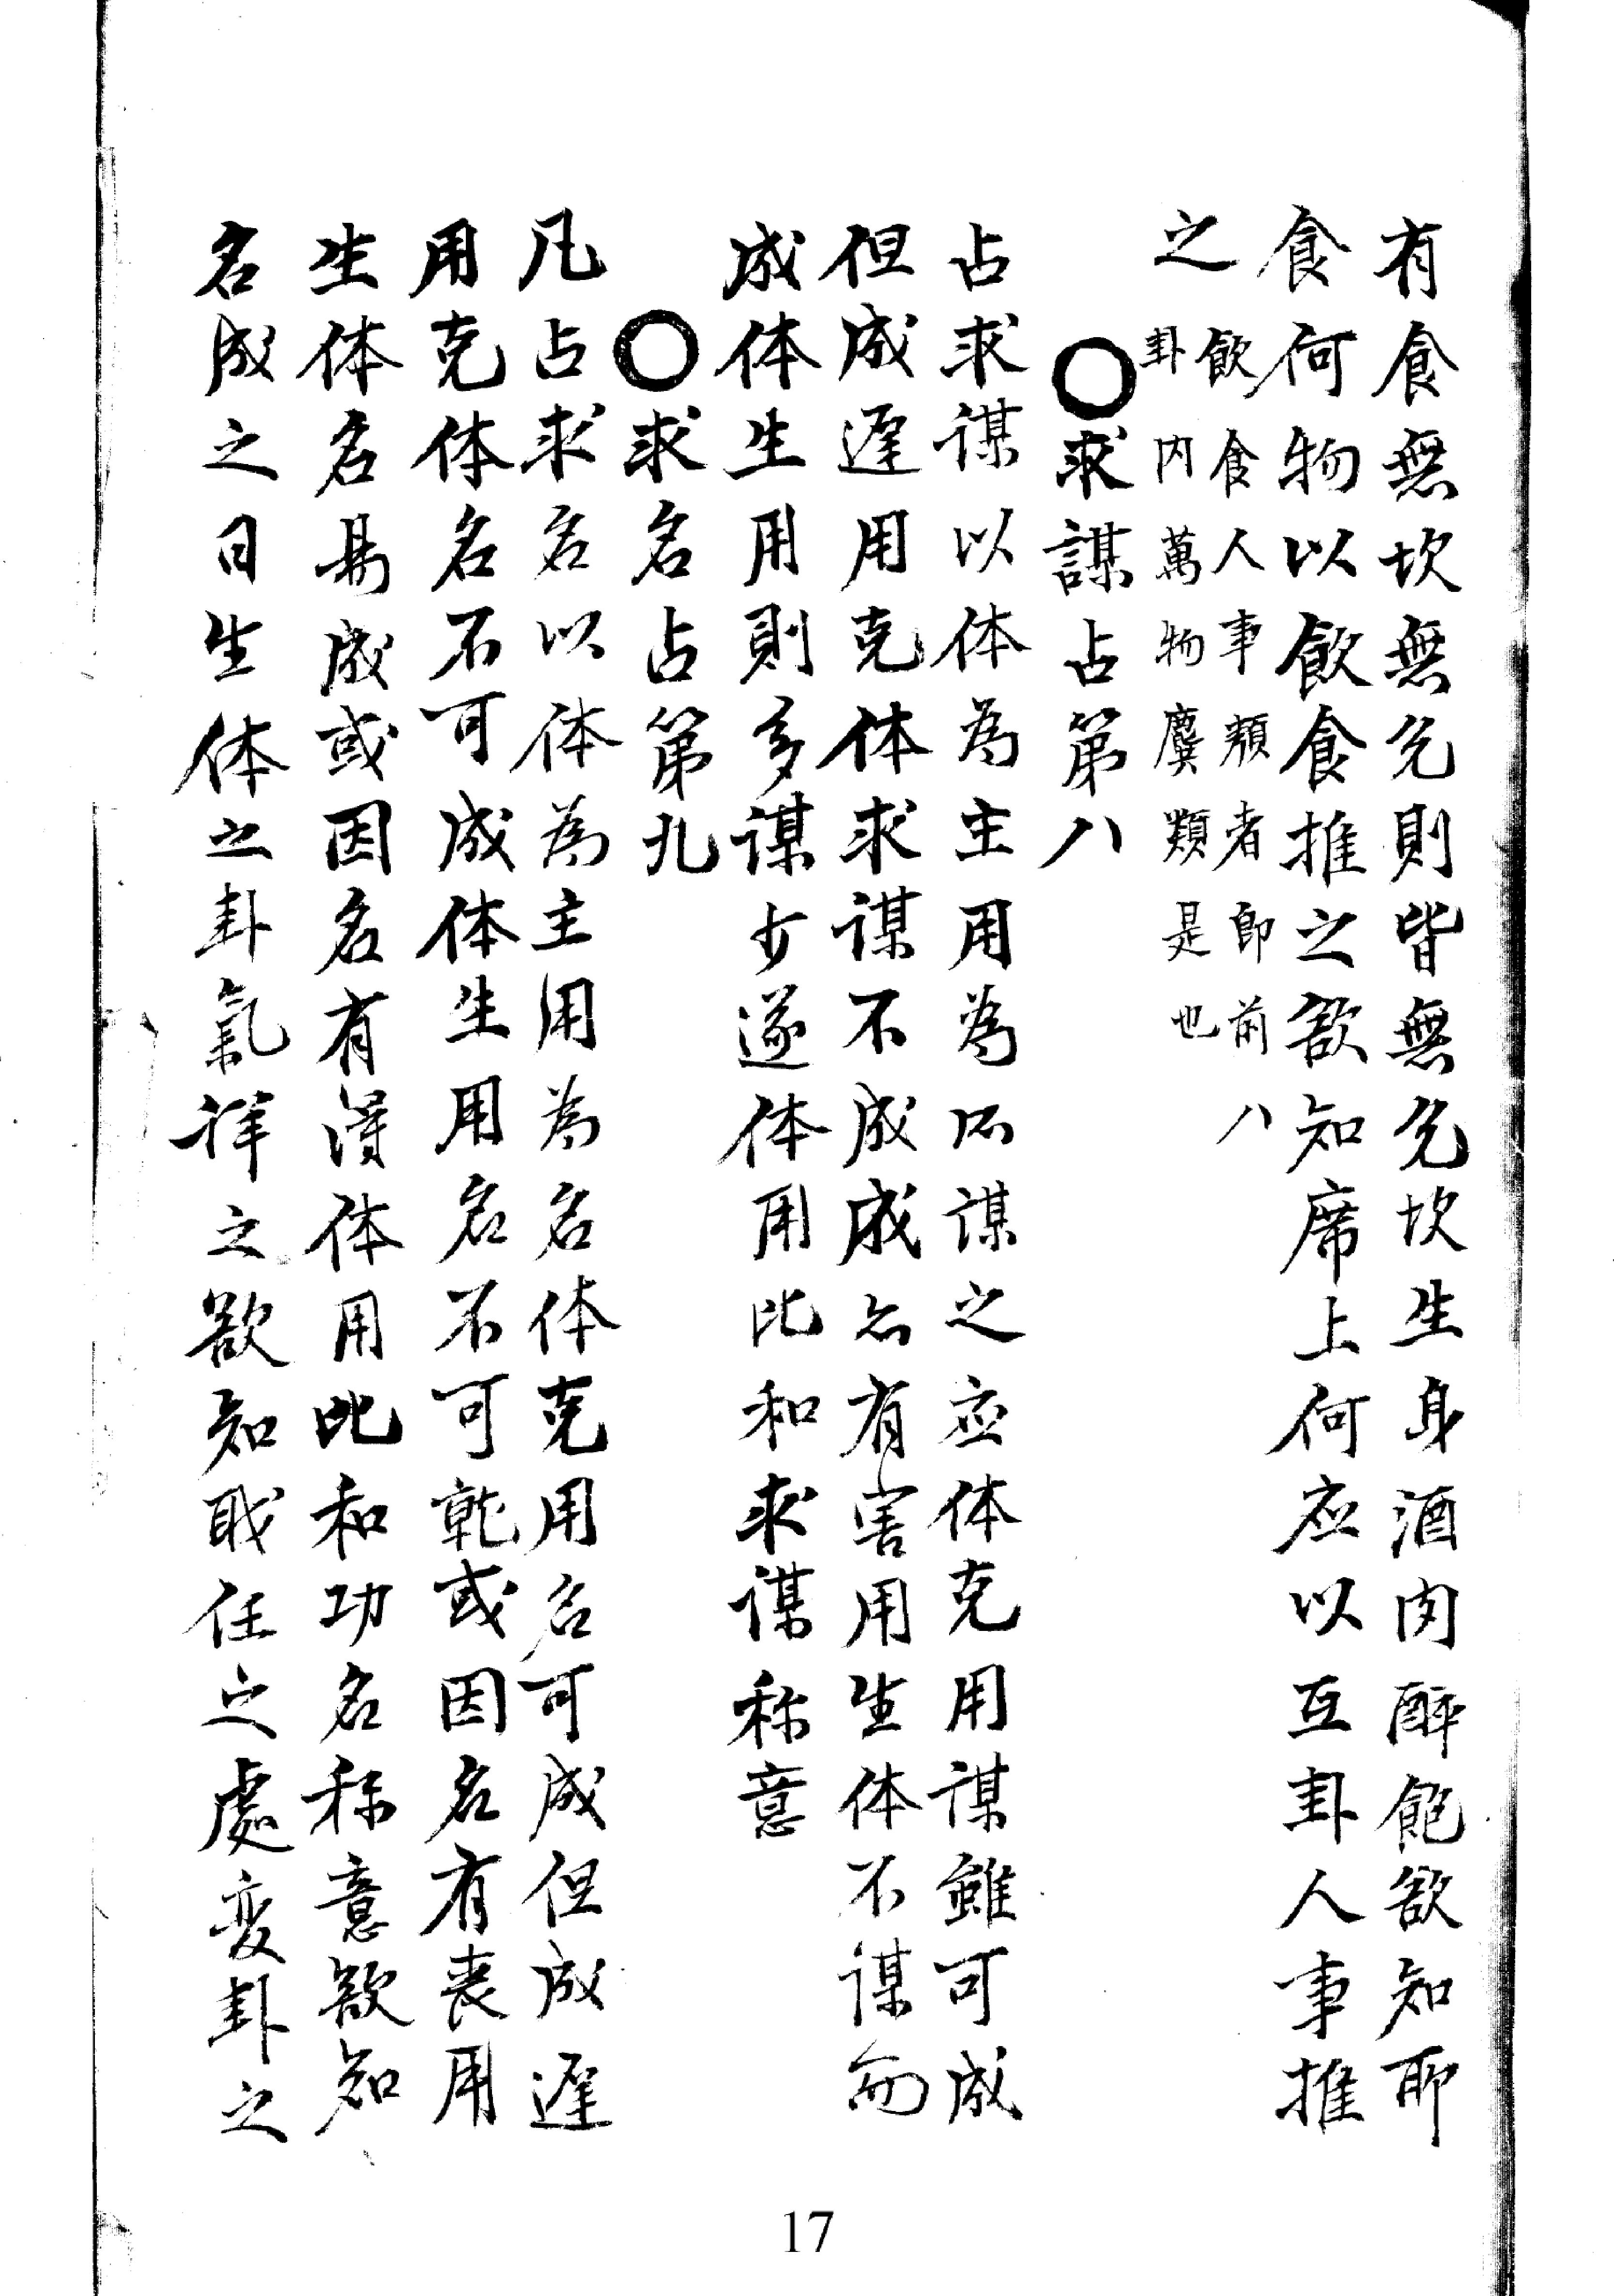 有食無坎無兊則皆無兊坎生身酒肉醉飽欲知所
食何物以飲食推之欲知席上何应以互卦人事推
之
飲食人事類者即前八
卦内萬物屬類是也
〇求謀占第八
占求謀以体為主用為所謀之应体克用謀雖可成
但成遅用克体求謀不成成亦有害用生体不謀而
成体生用則多謀少遂体用比和求謀称意
〇求名占第九
凡占求名以体為主用為名体克用名可成但成遅
用克体名不可成体生用名不可就或因名有丧用
生体名易成或因名有得体用比和功名称意欲知
名成之日生体之卦氣祥之欲知職任之處变卦之
17